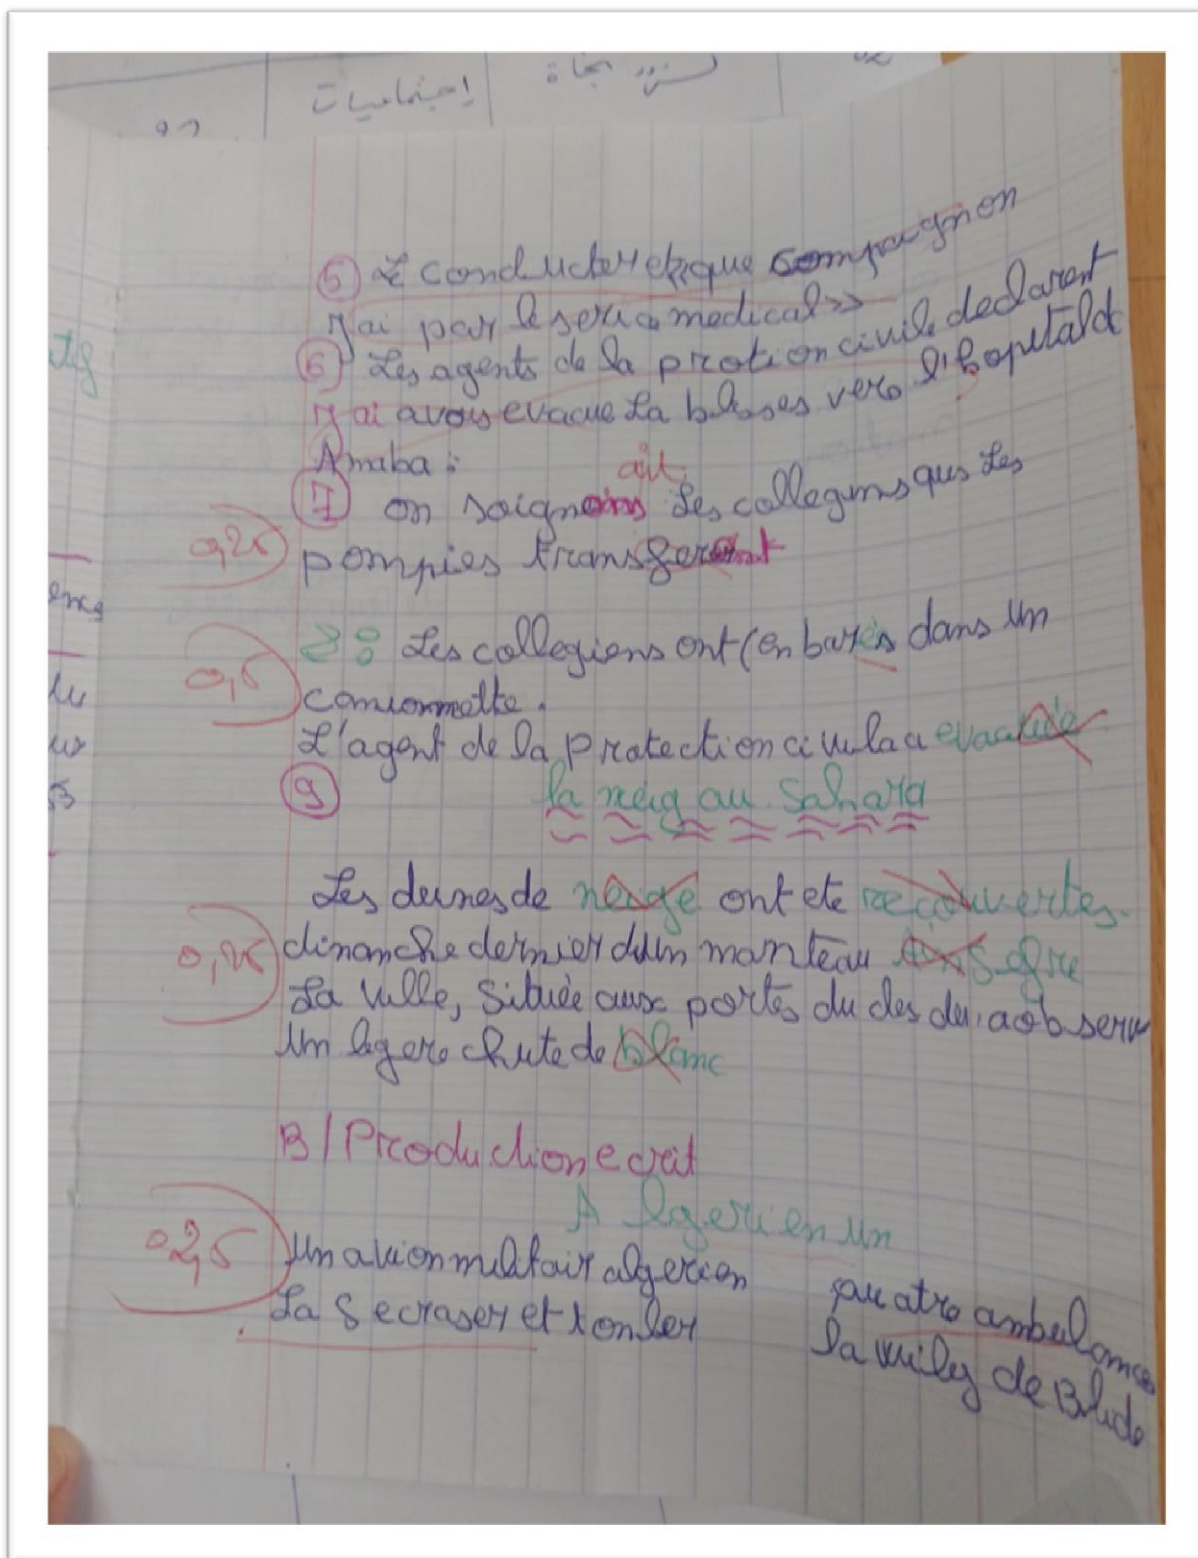 إجتماعيات
5 Le conducter et que compagnon
n'ai par le medical »
6 Les agents de la protion civile declarent
n'ai avois evacue La blesses vers l'hopital d
Annaba :
ait
7 on soignoins Les collegiens que Les
0,25
pompies transferent
0,5
28 Les collegiens ont (en barès dans un
camionnette.
L'agent de la protection civula a
9 la neig au Sahara
Les dunes de neige ont ete recouvertes.
0,25
dinanche dernier d'un manteau Safre
La ville, Située aux portes du des du, a observ
un legere chute de blanc
B/ Production ecrit
Algerien un
02,5
un avion militair algerien quatre ambulances
La S'ecraser et tonber la de Blida